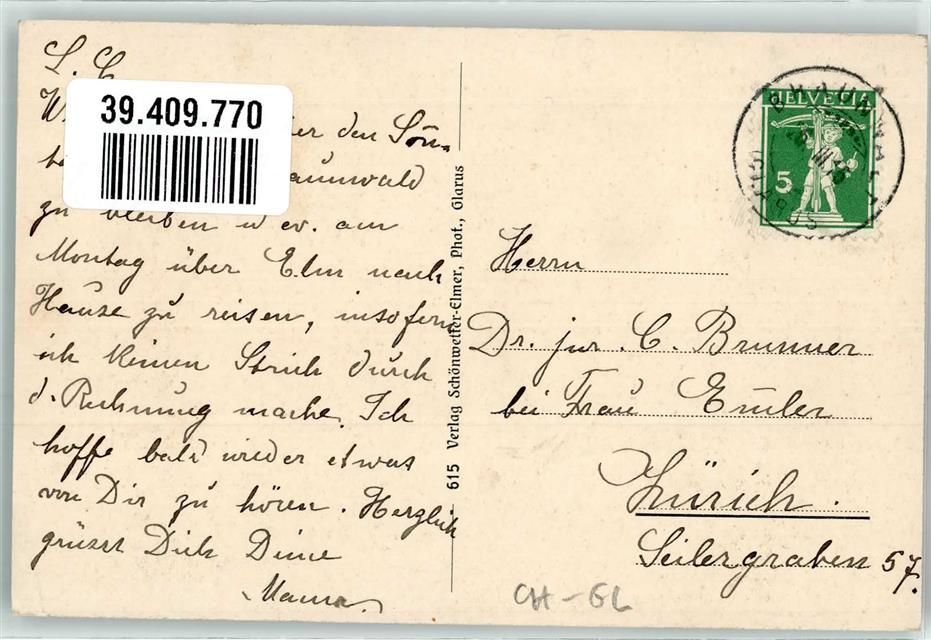 L. C
39.409.770
W er den Sonn-
aunwald
zu bleiben u ev. am
Montag über Elm nach
Hause zu reisen, insofern
ich keinen Strich durch
d. Rechnung mache. Ich
hoffe bald wieder etwas
von Dir zu hören. Herzlich
grüsst Dich Deine
Mama.
615 Verlag Schönwetter-Elmer, Phot., Glarus
HELVETIA
5
BRAUNWALD
(GLARUS)
Herrn
Dr. jur. C. Brunner
bei Frau Emler
Zürich.
Seilergraben 57.
CH-GL